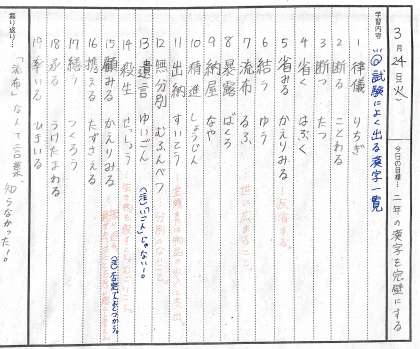 3月24日(火)
今日の目標… 二年の漢字を完璧にする
学習内容
◎試験によく出る漢字一覧
1 律儀 りちぎ
2 断る ことわる
3 断つ たつ
4 省く はぶく
5 省みる かえりみる 反省する。
6 結う ゆう
7 流布 るふ 世に広まること。
8 暴露 ばくろ
9 納屋 なや
10 精進 しょうじん
11 出納 すいとう
12 無分別 むふんべつ 分別のないこと。
13 遺言 ゆいごん (注)いごんじゃない!。
14 殺生 せっしょう
15 顧みる かえりみる
16 携える たずさえる
17 繕う つくろう
18 承る うけたまわる
19 率いる ひきいる
振り返り…
「流布」なんて言葉、知らなかった!。